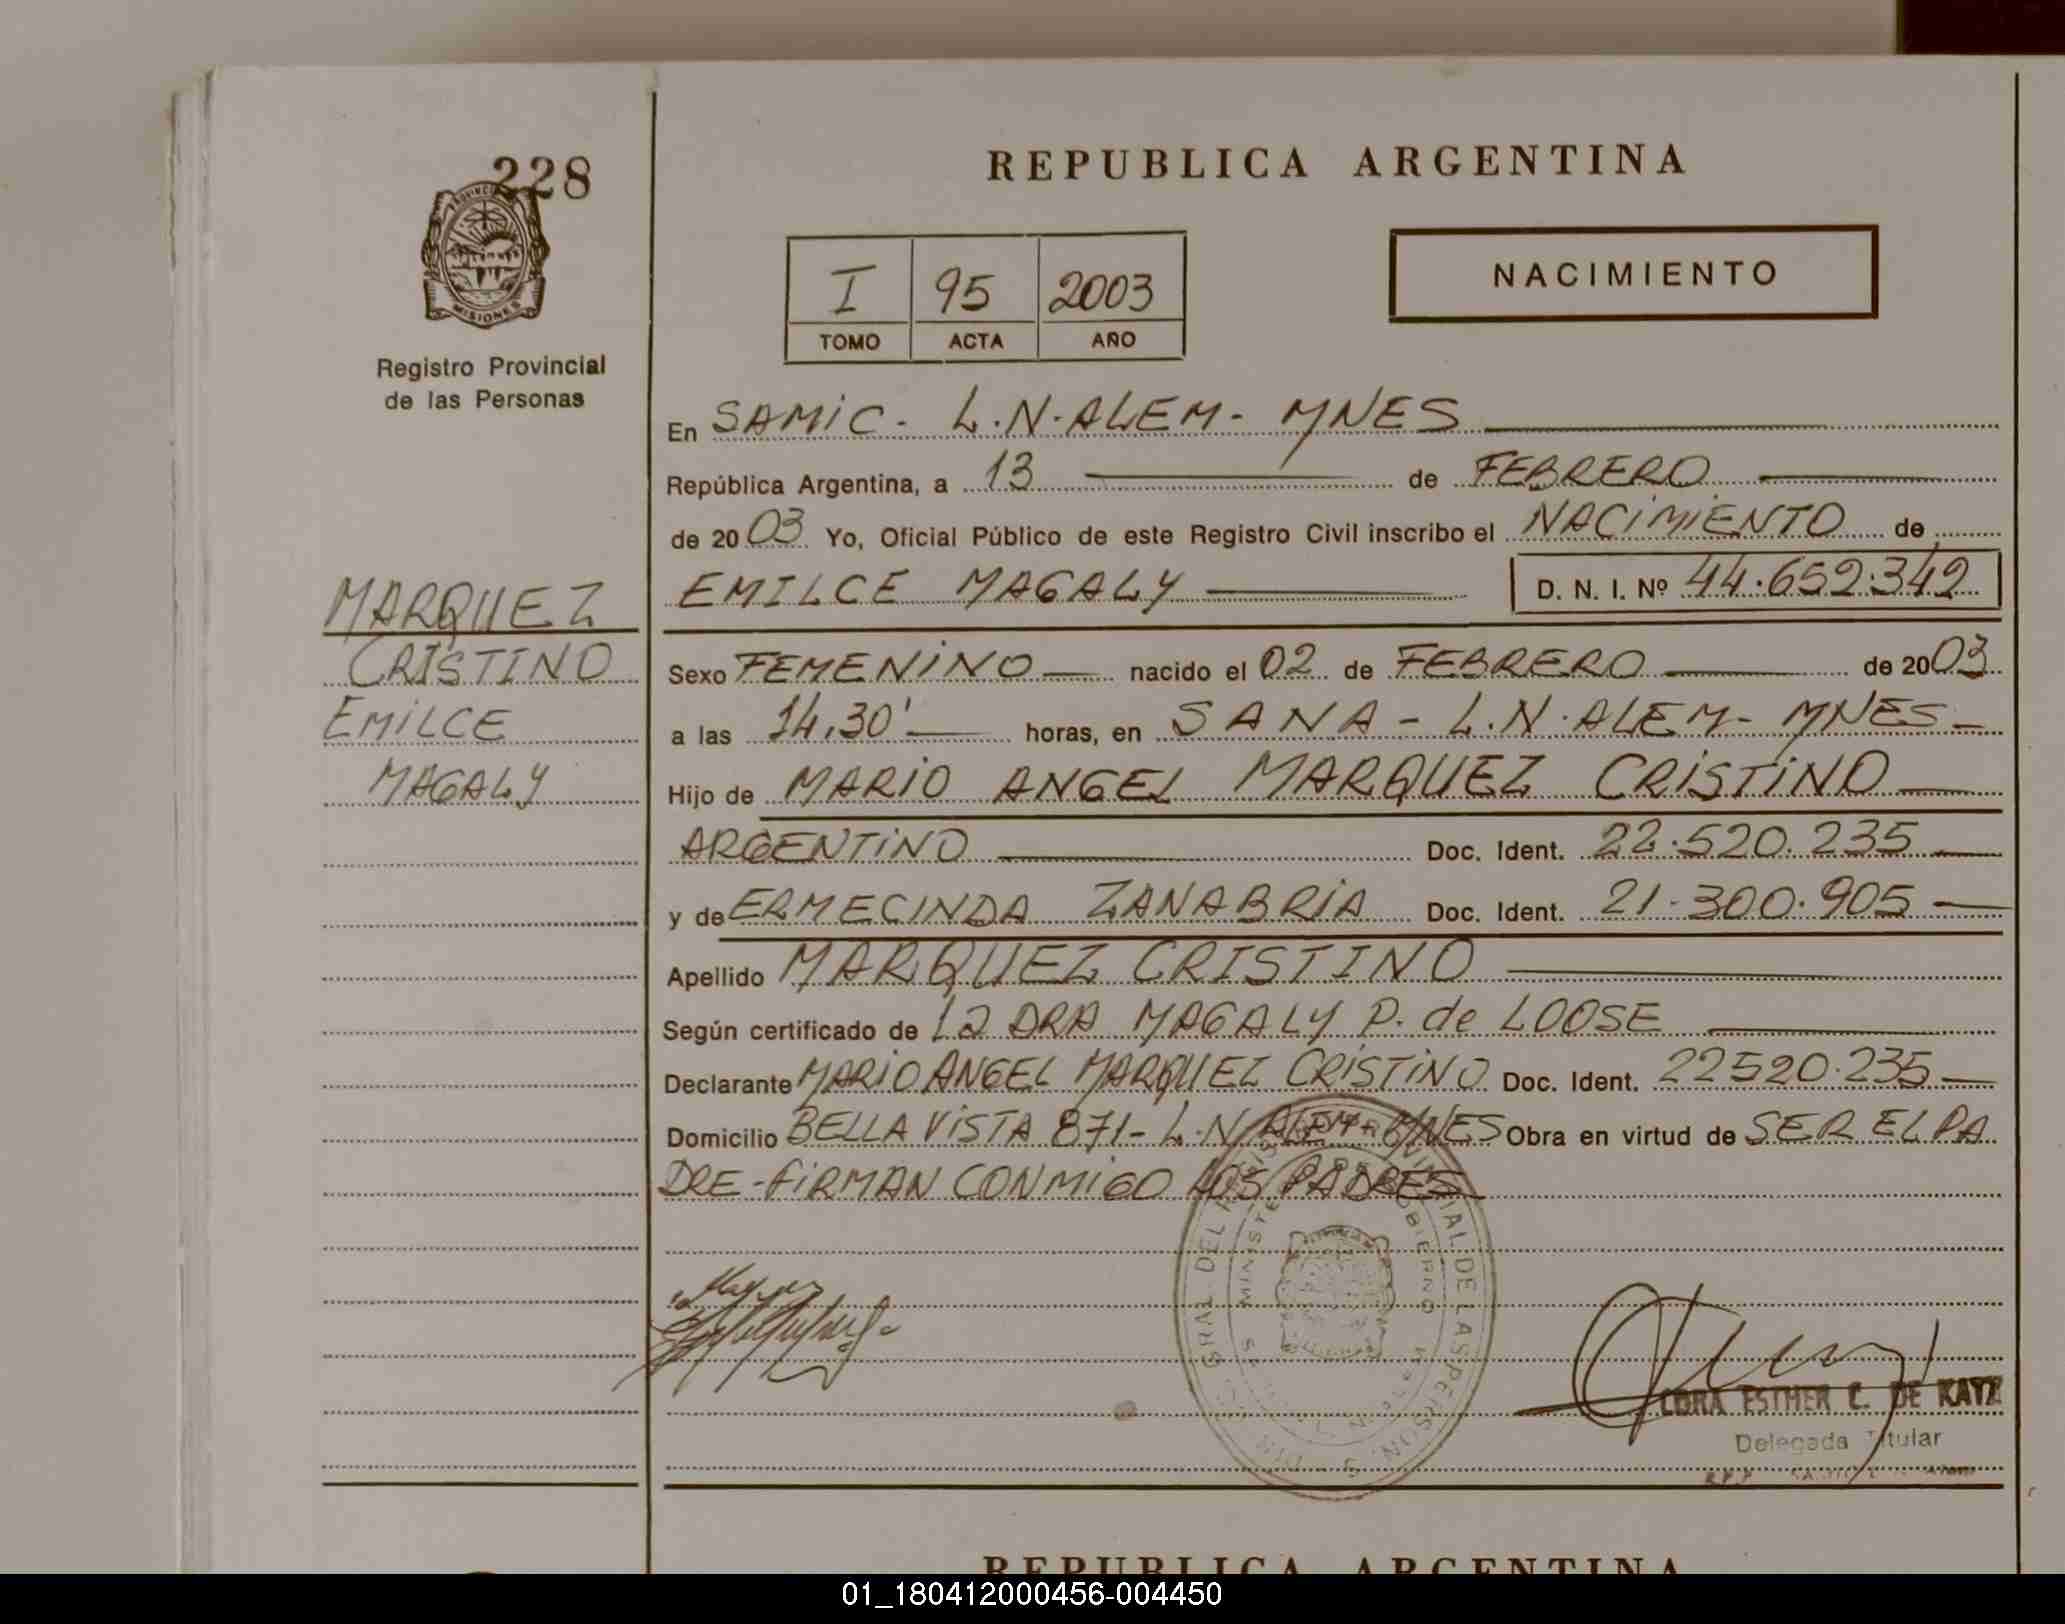 228
PROVINCIA
MISIONES
Registro Provincial
de las Personas
MARQUEZ
CRISTINO
EMILCE
MAGALY
REPUBLICA ARGENTINA
I 95 2003
TOMO ACTA AÑO
NACIMIENTO
En SAMIC - L.N. ALEM - MNES
República Argentina, a 13 de FEBRERO
de 2003 Yo, Oficial Público de este Registro Civil inscribo el NACIMIENTO de
EMILCE MAGALY D. N. I. Nº 44.652.342
Sexo FEMENINO nacido el 02 de FEBRERO de 2003
a las 14,30' horas, en SANA - L.N. ALEM - MNES -
Hijo de MARIO ANGEL MARQUEZ CRISTINO
ARGENTINO Doc. Ident. 22.520.235
y de ERMECINDA ZANABRIA Doc. Ident. 21.300.905
Apellido MARQUEZ CRISTINO
Según certificado de La DRA MAGALY P. de LOOSE
Declarante MARIO ANGEL MARQUEZ CRISTINO Doc. Ident. 22520.235
Domicilio BELLA VISTA 871 - L.N. ALEM - MNES Obra en virtud de SER EL PA
DRE - FIRMAN CONMIGO LOS PADRES
ESTHER C. DE KATZ
Delegada Titular
REPUBLICA ARGENTINA
01_180412000456-004450